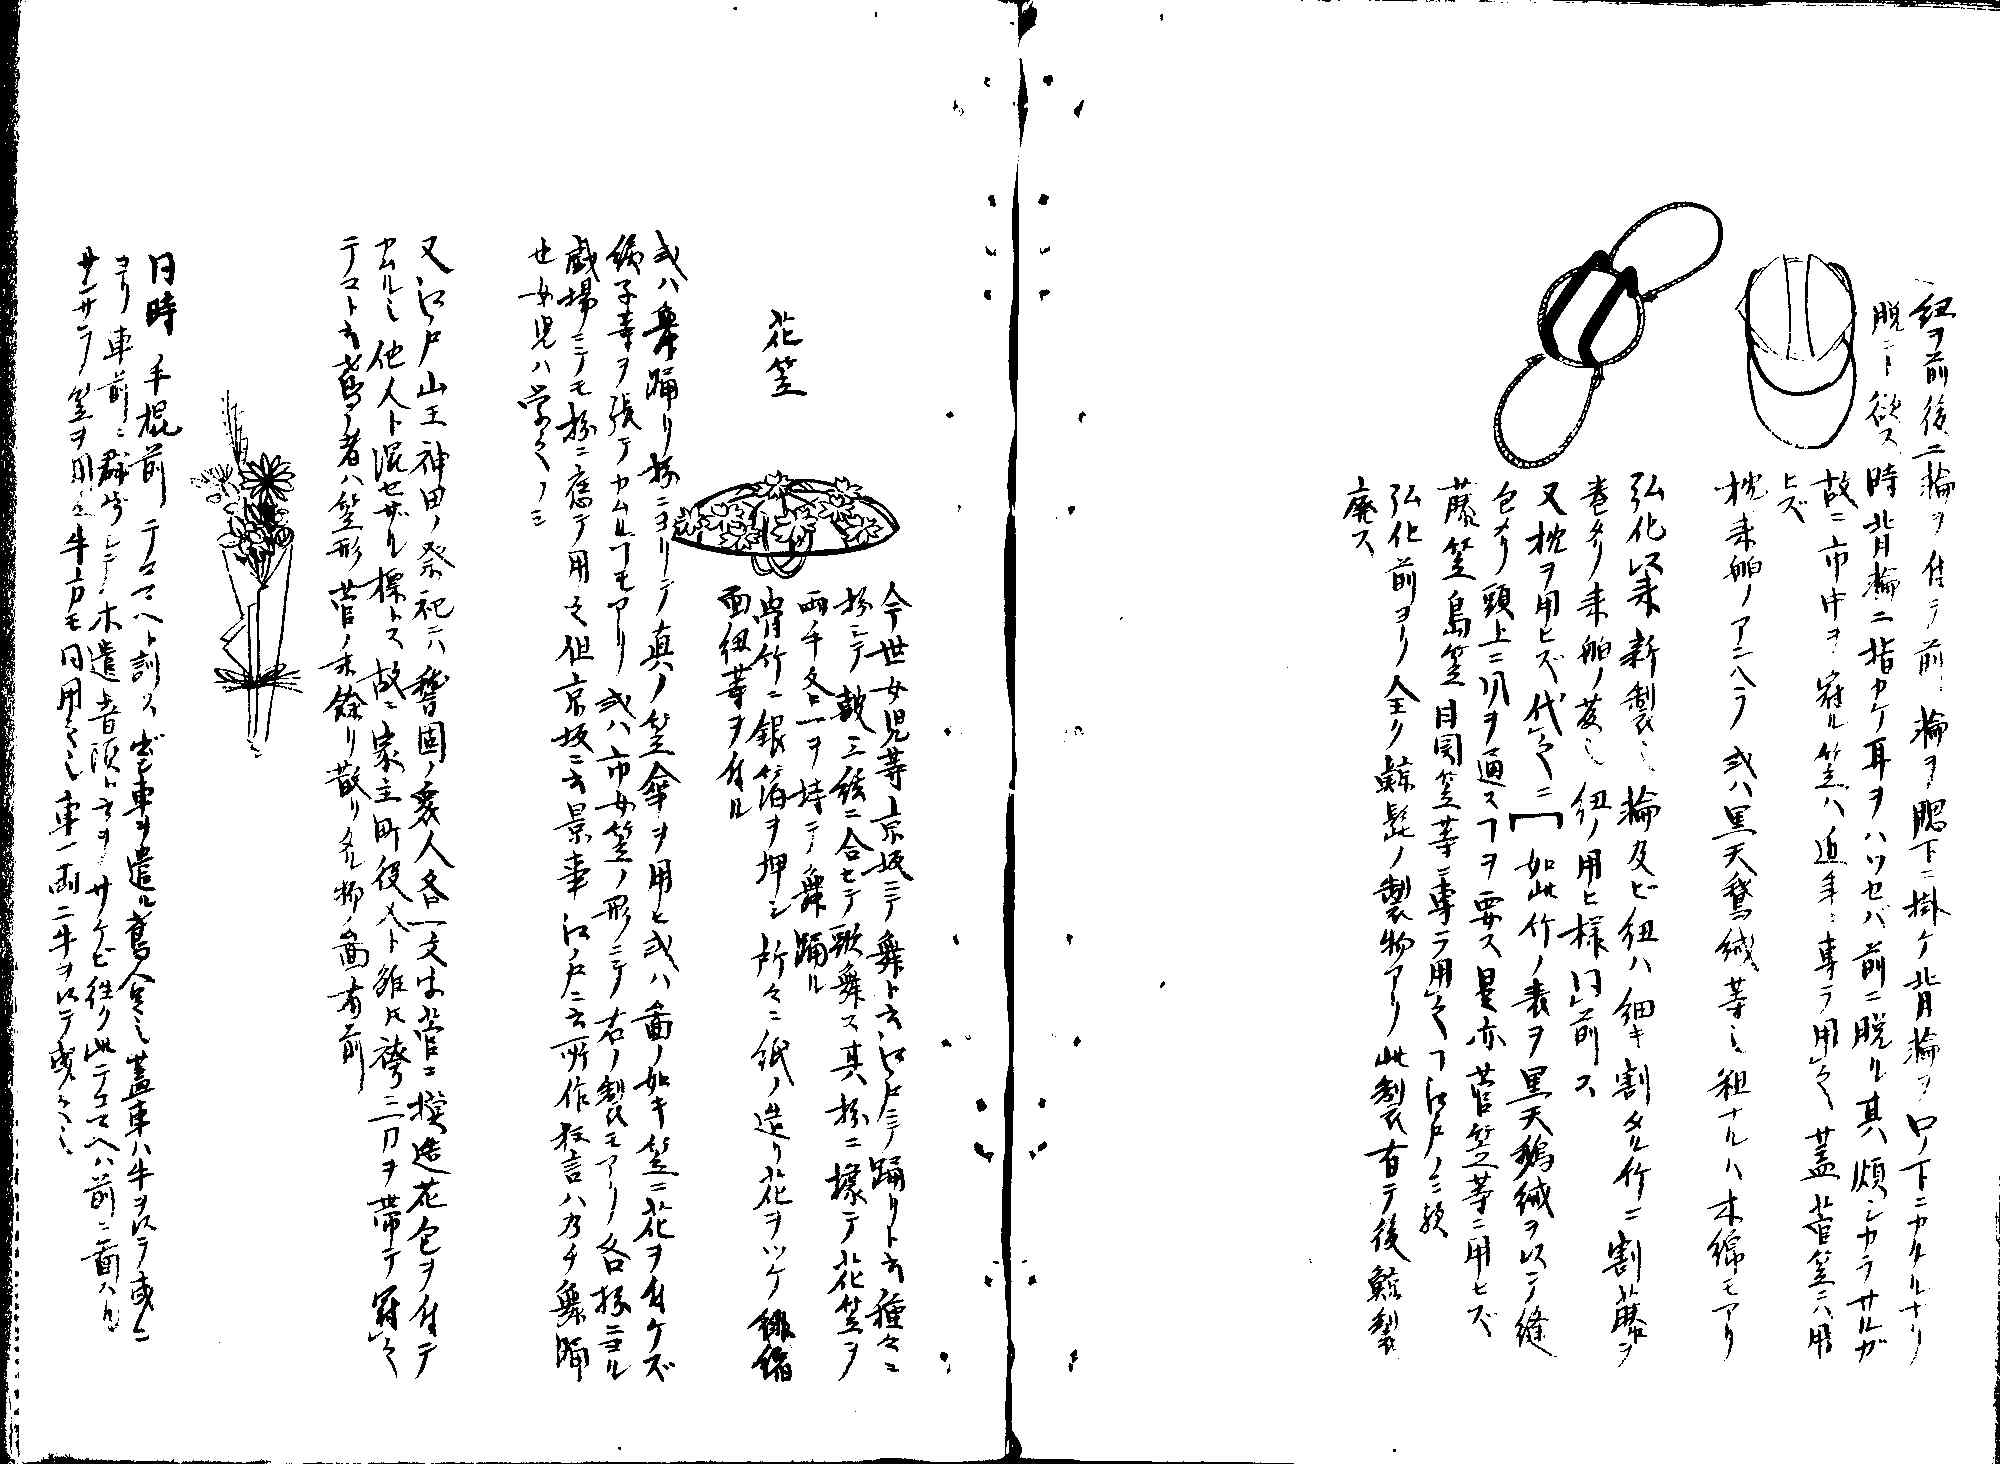 紐ヲ前後ニ輪ヲ付テ前輪ヲ腮下ニ掛ケ背輪ヲ口ノ下ニカクルナリ
脱ント欲ス時背輪ニ指カケ耳ヲハヅセバ前ニ脱ル其煩シカラサルガ
故ニ市中ヲ冠ル笠ハ近年ニ専ラ用之蓋菅笠ニハ用
ヒズ
枕来舶ノアンヘラ或ハ黒天鵞絨等也粗ナルハ木綿モアリ
弘化以来新製也輪及ビ紐ハ細キ割タル竹ニ割藤ヲ
巻タリ来舶ノ莀也紐ノ用ヒ様同前ス
又枕ヲ用ヒズ代之ニ如此竹ノ表ヲ黒天鵝絨ヲ以テ縫
包タリ頭上ニ風ヲ通スヿヲ要ス是亦菅笠等ニ用ヒズ
藤笠島笠目関笠等ニ専ラ用之ヿ江戸ノミ歟
弘化前ヨリ全ク鯨髭ノ製物アリ此製有テ後鯨製
廃ス
花笠
今世女児等京坂ニテ舞ト云江戸ニテ踊リト云種々ニ
扮シテ鼓三絃ニ合セテ歌舞ス其扮ニ據テ花笠ヲ
両手各一ヲ持テ舞踊ル
骨竹ニ銀箔ヲ押シ所々ニ紙ノ造リ花ヲツケ緋縮
面紐等ヲ付ル
或ハ舞踊リ扮ニヨリテ真ノ笠傘ヲ用ヒ或ハ図ノ如キ笠ニ花ヲ付ケズ
緞子等ヲ張テカムルヿモアリ或ハ市女笠ノ形ニテ右ノ製モアリ各扮ニヨル
戯場ニテモ扮ニ応テ用之但京坂ニ云景事江戸ニ云所作狂言ハ乃チ舞踊
也女児ハ学之ノミ
又江戸山王神田ノ祭祀ニハ警固ノ衆人各一文字菅ニ摸造花包ヲ付テ
カムル也他人ト混セザル標トス故ニ家主町役人ト雖ドモ袴二刀ヲ帯テ冠之
テコト云鳶ノ者ハ笠形菅ノ末餘リ散リタル物ノ図有前
同時手棍前テコマヘト訓ス出車ヲ遣ル鳶人足也蓋車ハ牛ヲ以テ曳ク
ヨリ車前ニ群歩シテ木遣音頭ト云ヲサケビ往ク此テコマヘハ前ニ図ハル
サンサラ笠ヲ用之牛方モ同用之也車一両ニ牛ヲ以テ曳之也